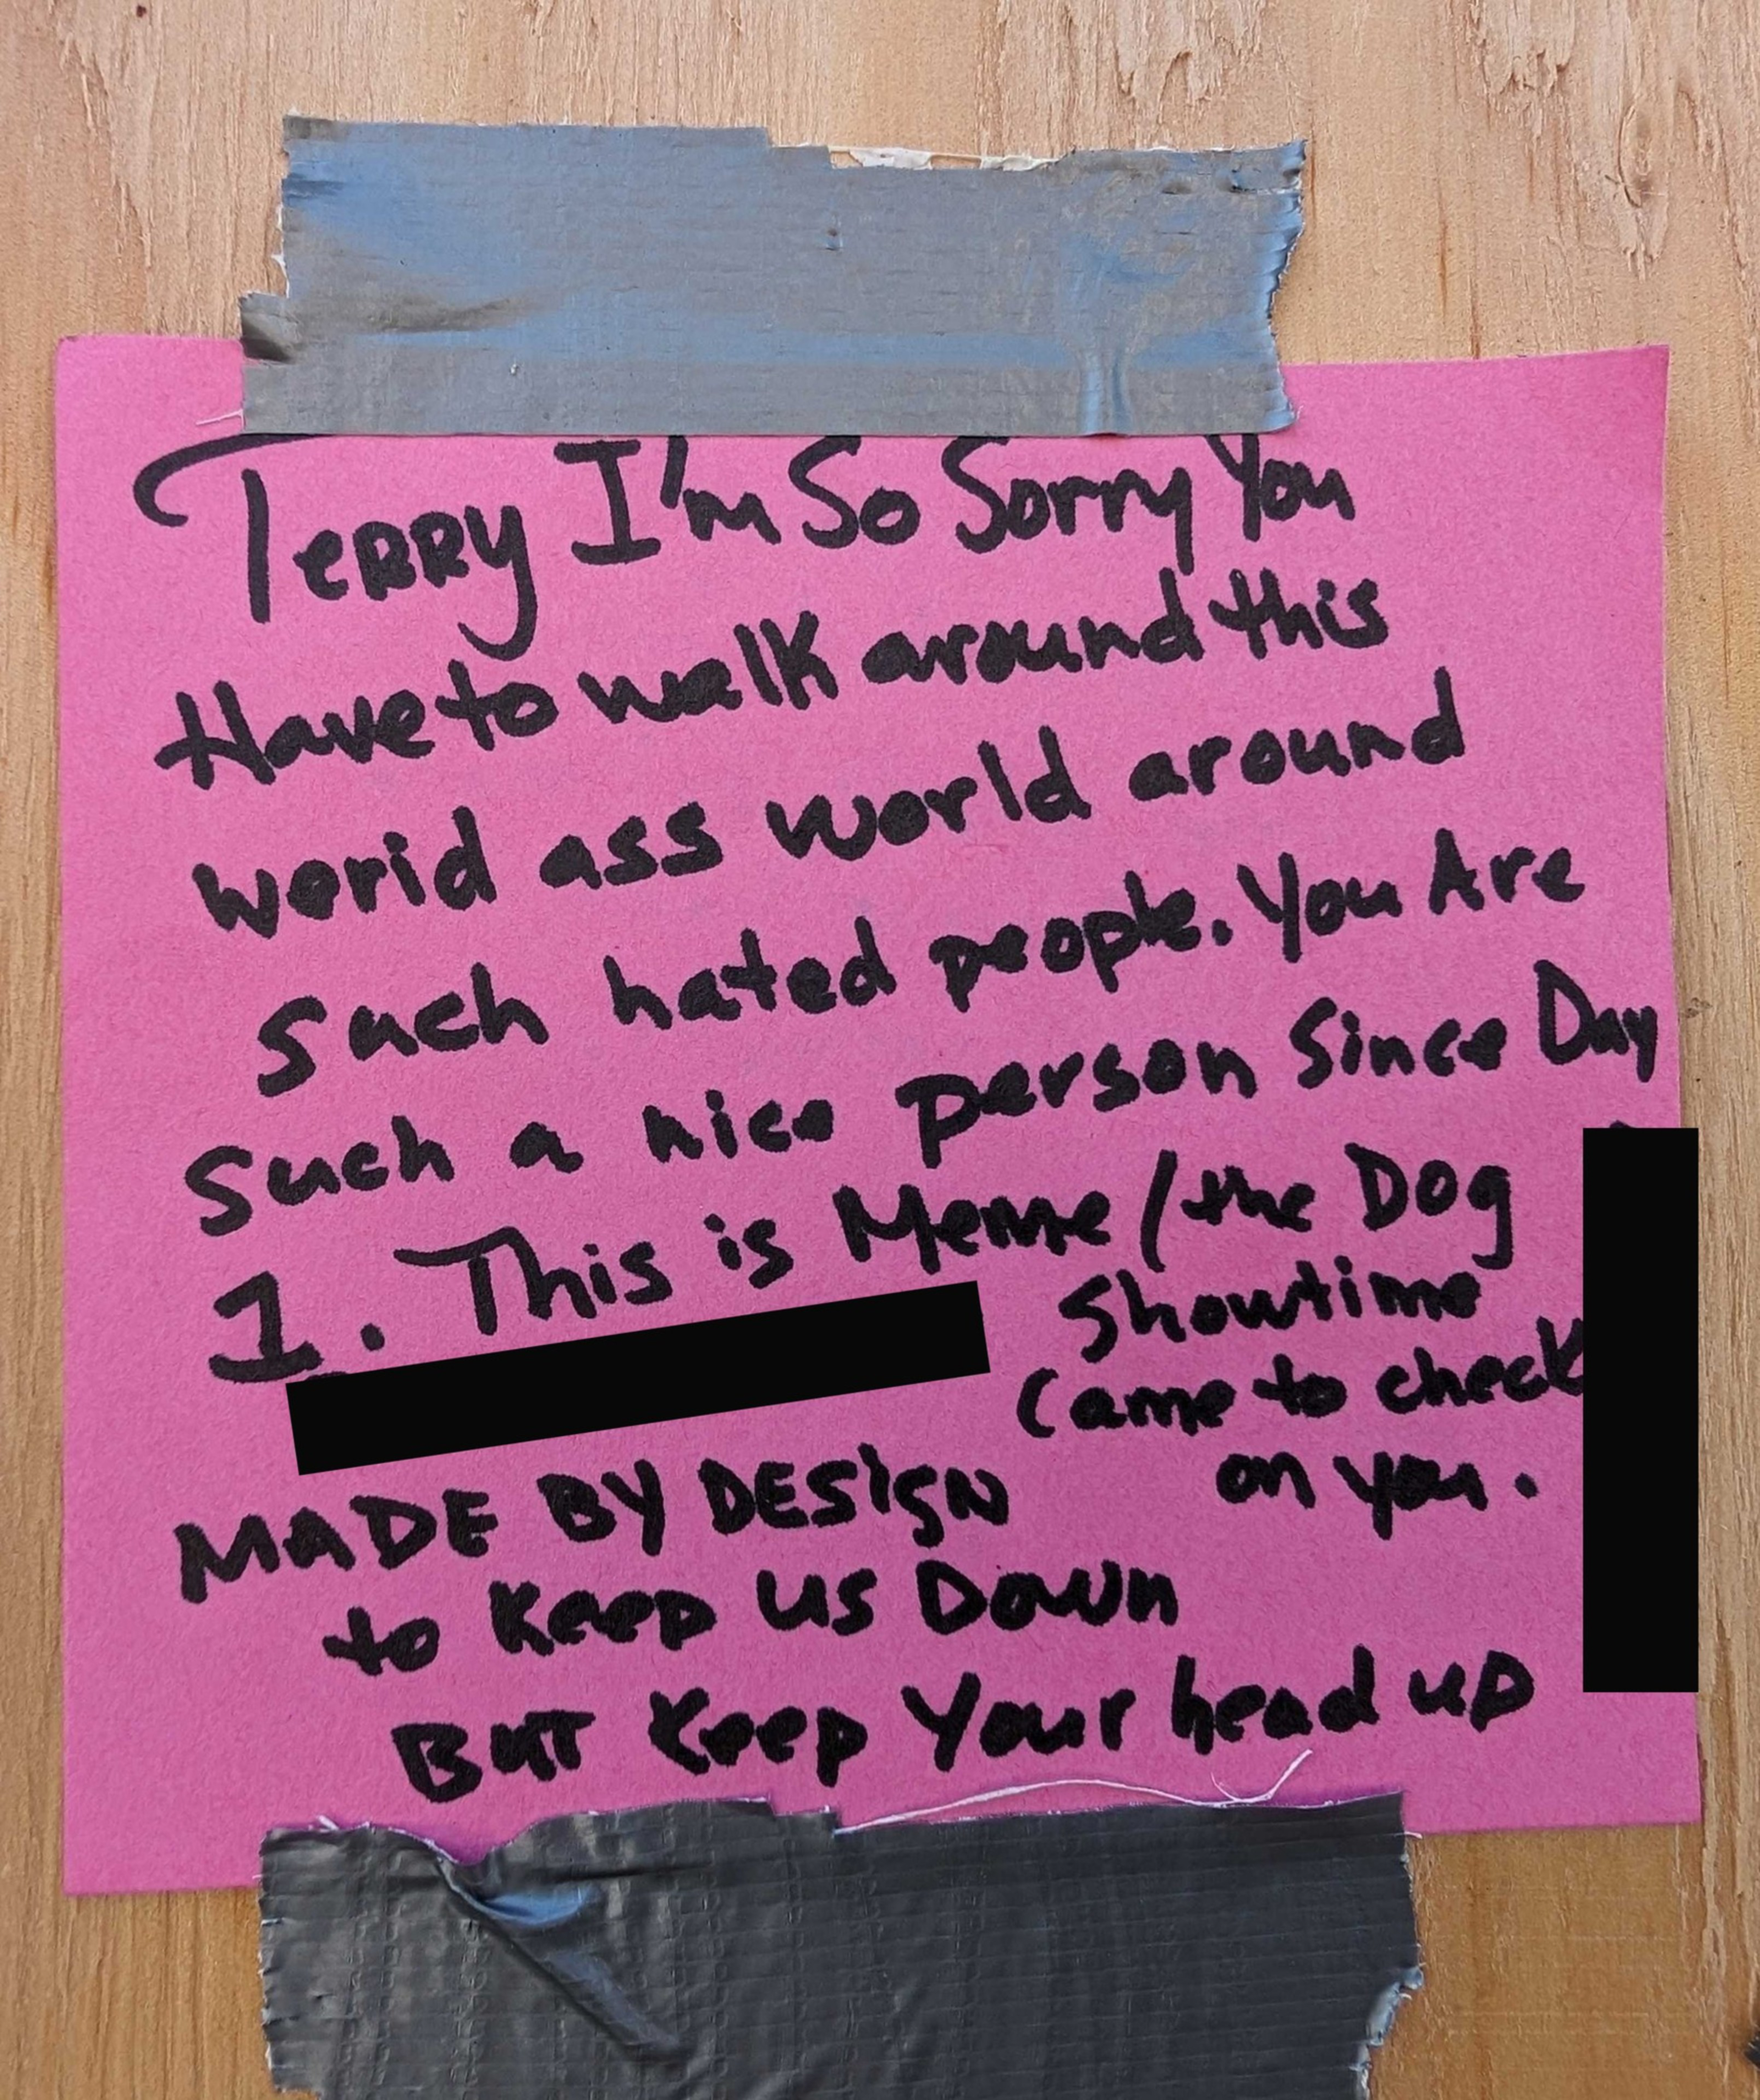 Terry I'm So Sorry You
Have to walk around this
worid ass world around
such hated people. You Are
Such a nice person Since Day
1. This is Meme / the Dog
Showtime
Came to check
on you.
MADE BY DESIGN
to Keep us Down
But Keep Your head up